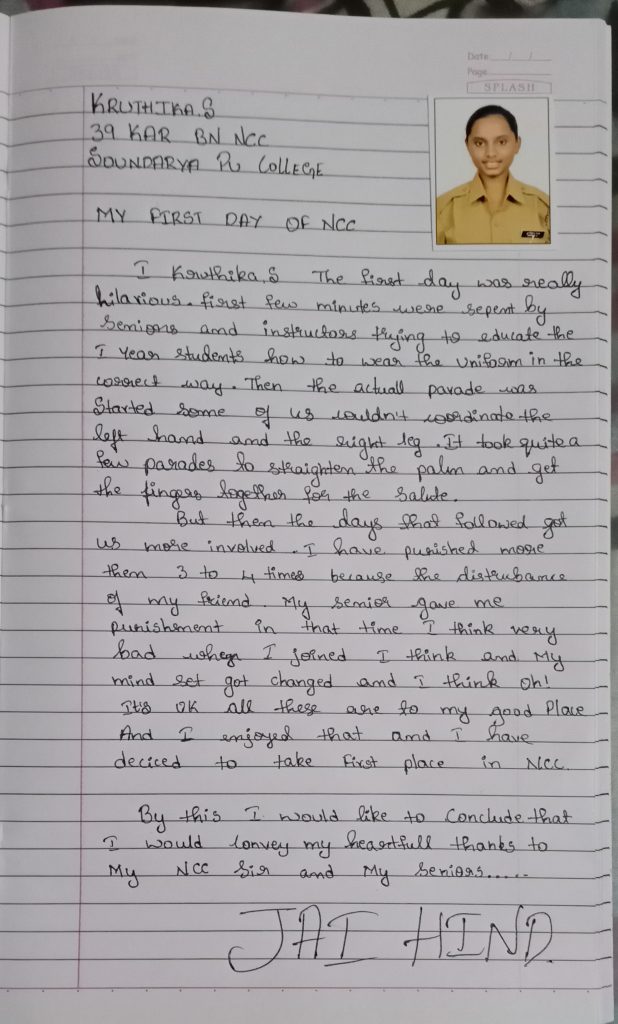 Date / /
Page
SPLASH
KRUTHIKA.S
39 KAR BN NCC
SOUNDARYA PU COLLEGE
MY FIRST DAY OF NCC
I Kruthika.S The first day was really
hilarious. first few minutes were sepent by
Seniors and instructors trying to educate the
I Year students how to wear the uniform in the
correct way. Then the actuall parade was
Started some of us couldn't coordinate the
left hand and the right leg. It took quite a
few parades to straighten the palm and get
the fingers together for the Salute.
But then the days that followed got
us more involved. I have punished more
then 3 to 4 times because the distrubance
of my friend. My senior gave me
punishment in that time I think very
bad when I joined I think and My
mind set got changed and I think Oh!
It's OK all these are to my good Place
And I enjoyed that and I have
deciced to take First place in NCC.
By this I would like to Conclude that
I would convey my heartfull thanks to
My NCC Sir and My Seniors.....
JAI HIND.